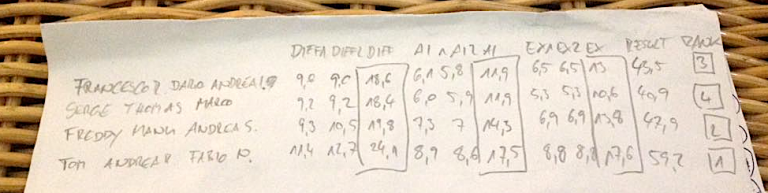 DIFFA DIFF2 DIFF A1 A12 A1 EX1 EX2 EX RESULT RANK
FRANCESCO DARO ANDREA 9,0 9,0 18,6 6,1 5,8 11,9 6,5 6,5 13 43,5 3
SERGE THOMAS MARCO 9,2 9,2 18,4 6,0 5,9 11,9 5,3 5,3 10,6 40,9 4
FREDDY MANU ANDREAS. 9,3 10,5 19,8 7,3 7 14,3 6,9 6,9 13,8 47,9 2
TOM ANDREAS FABIO N. 11,4 12,7 24,1 8,9 8,6 17,5 8,8 8,8 17,6 59,2 1